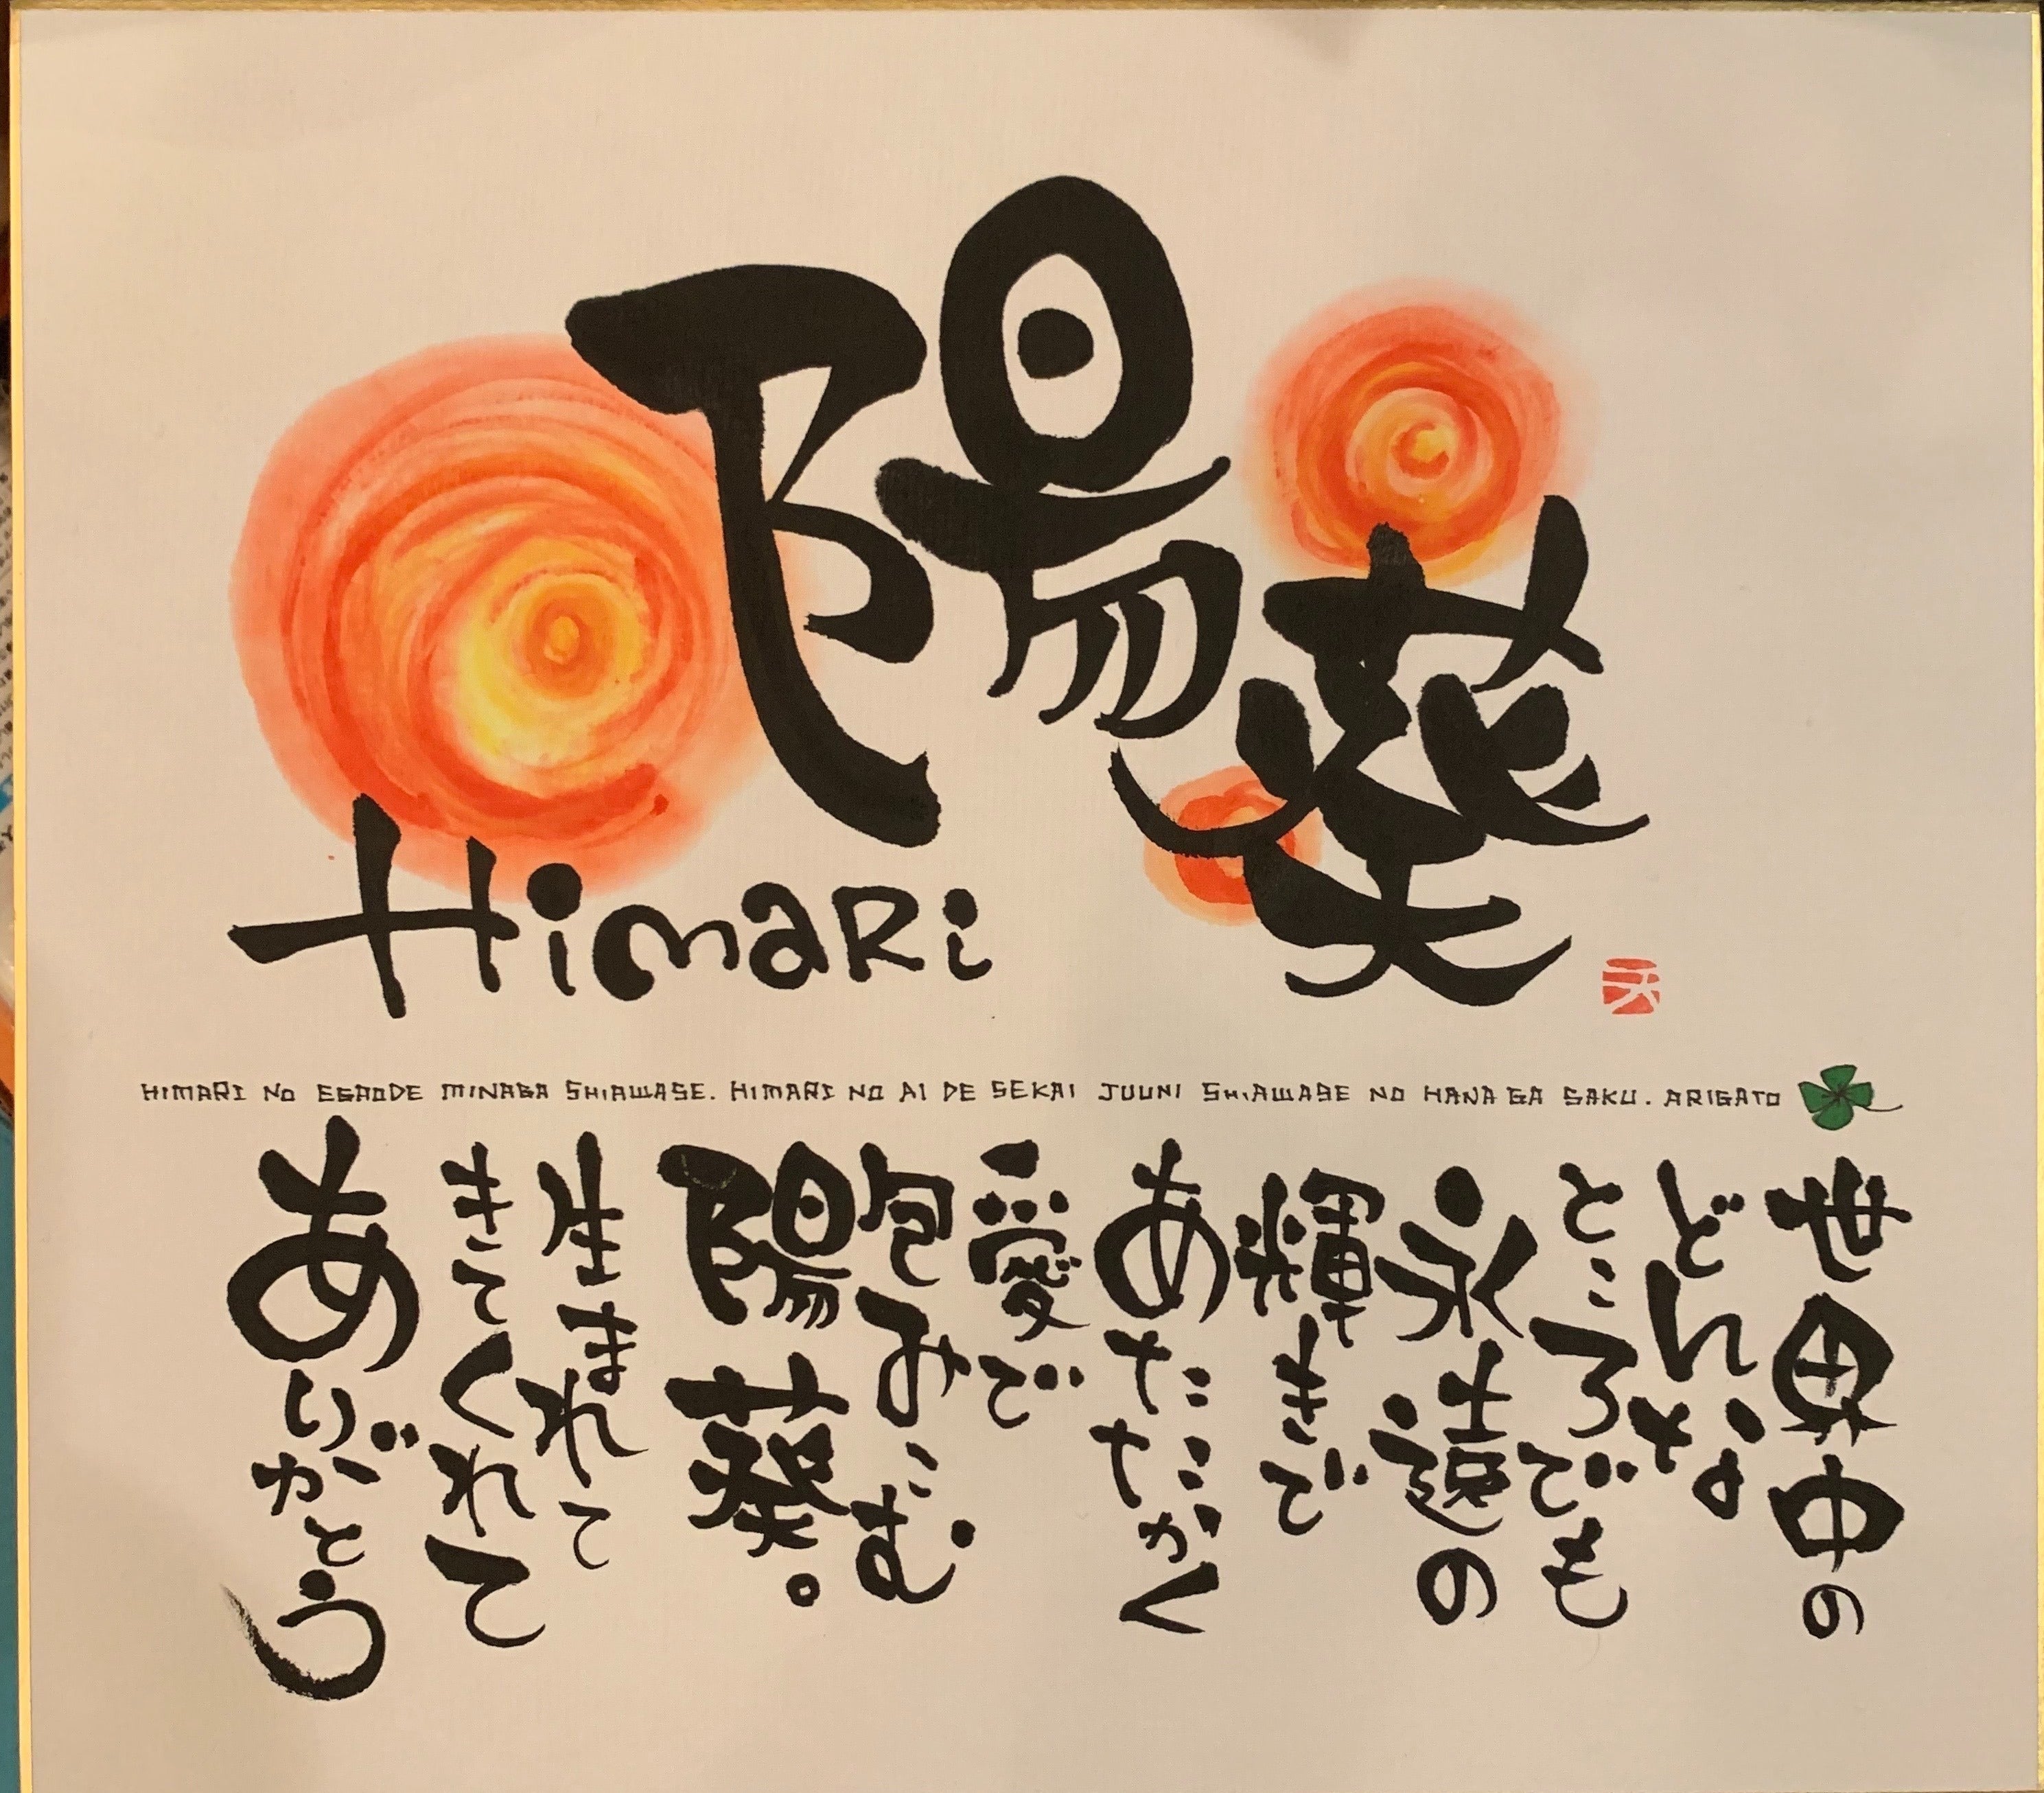 陽葵
Himari
HIMARI NO EGAODE MINAGA SHIAWASE. HIMARI NO AI DE SEKAI JUUNI SHIAWASE NO HANA GA SAKU. ARIGATO
世界中の
どんな
ところでも
永遠の
輝きで
あたたかく
愛で
包みこむ
陽葵。
生まれて
きてくれて
ありがとう